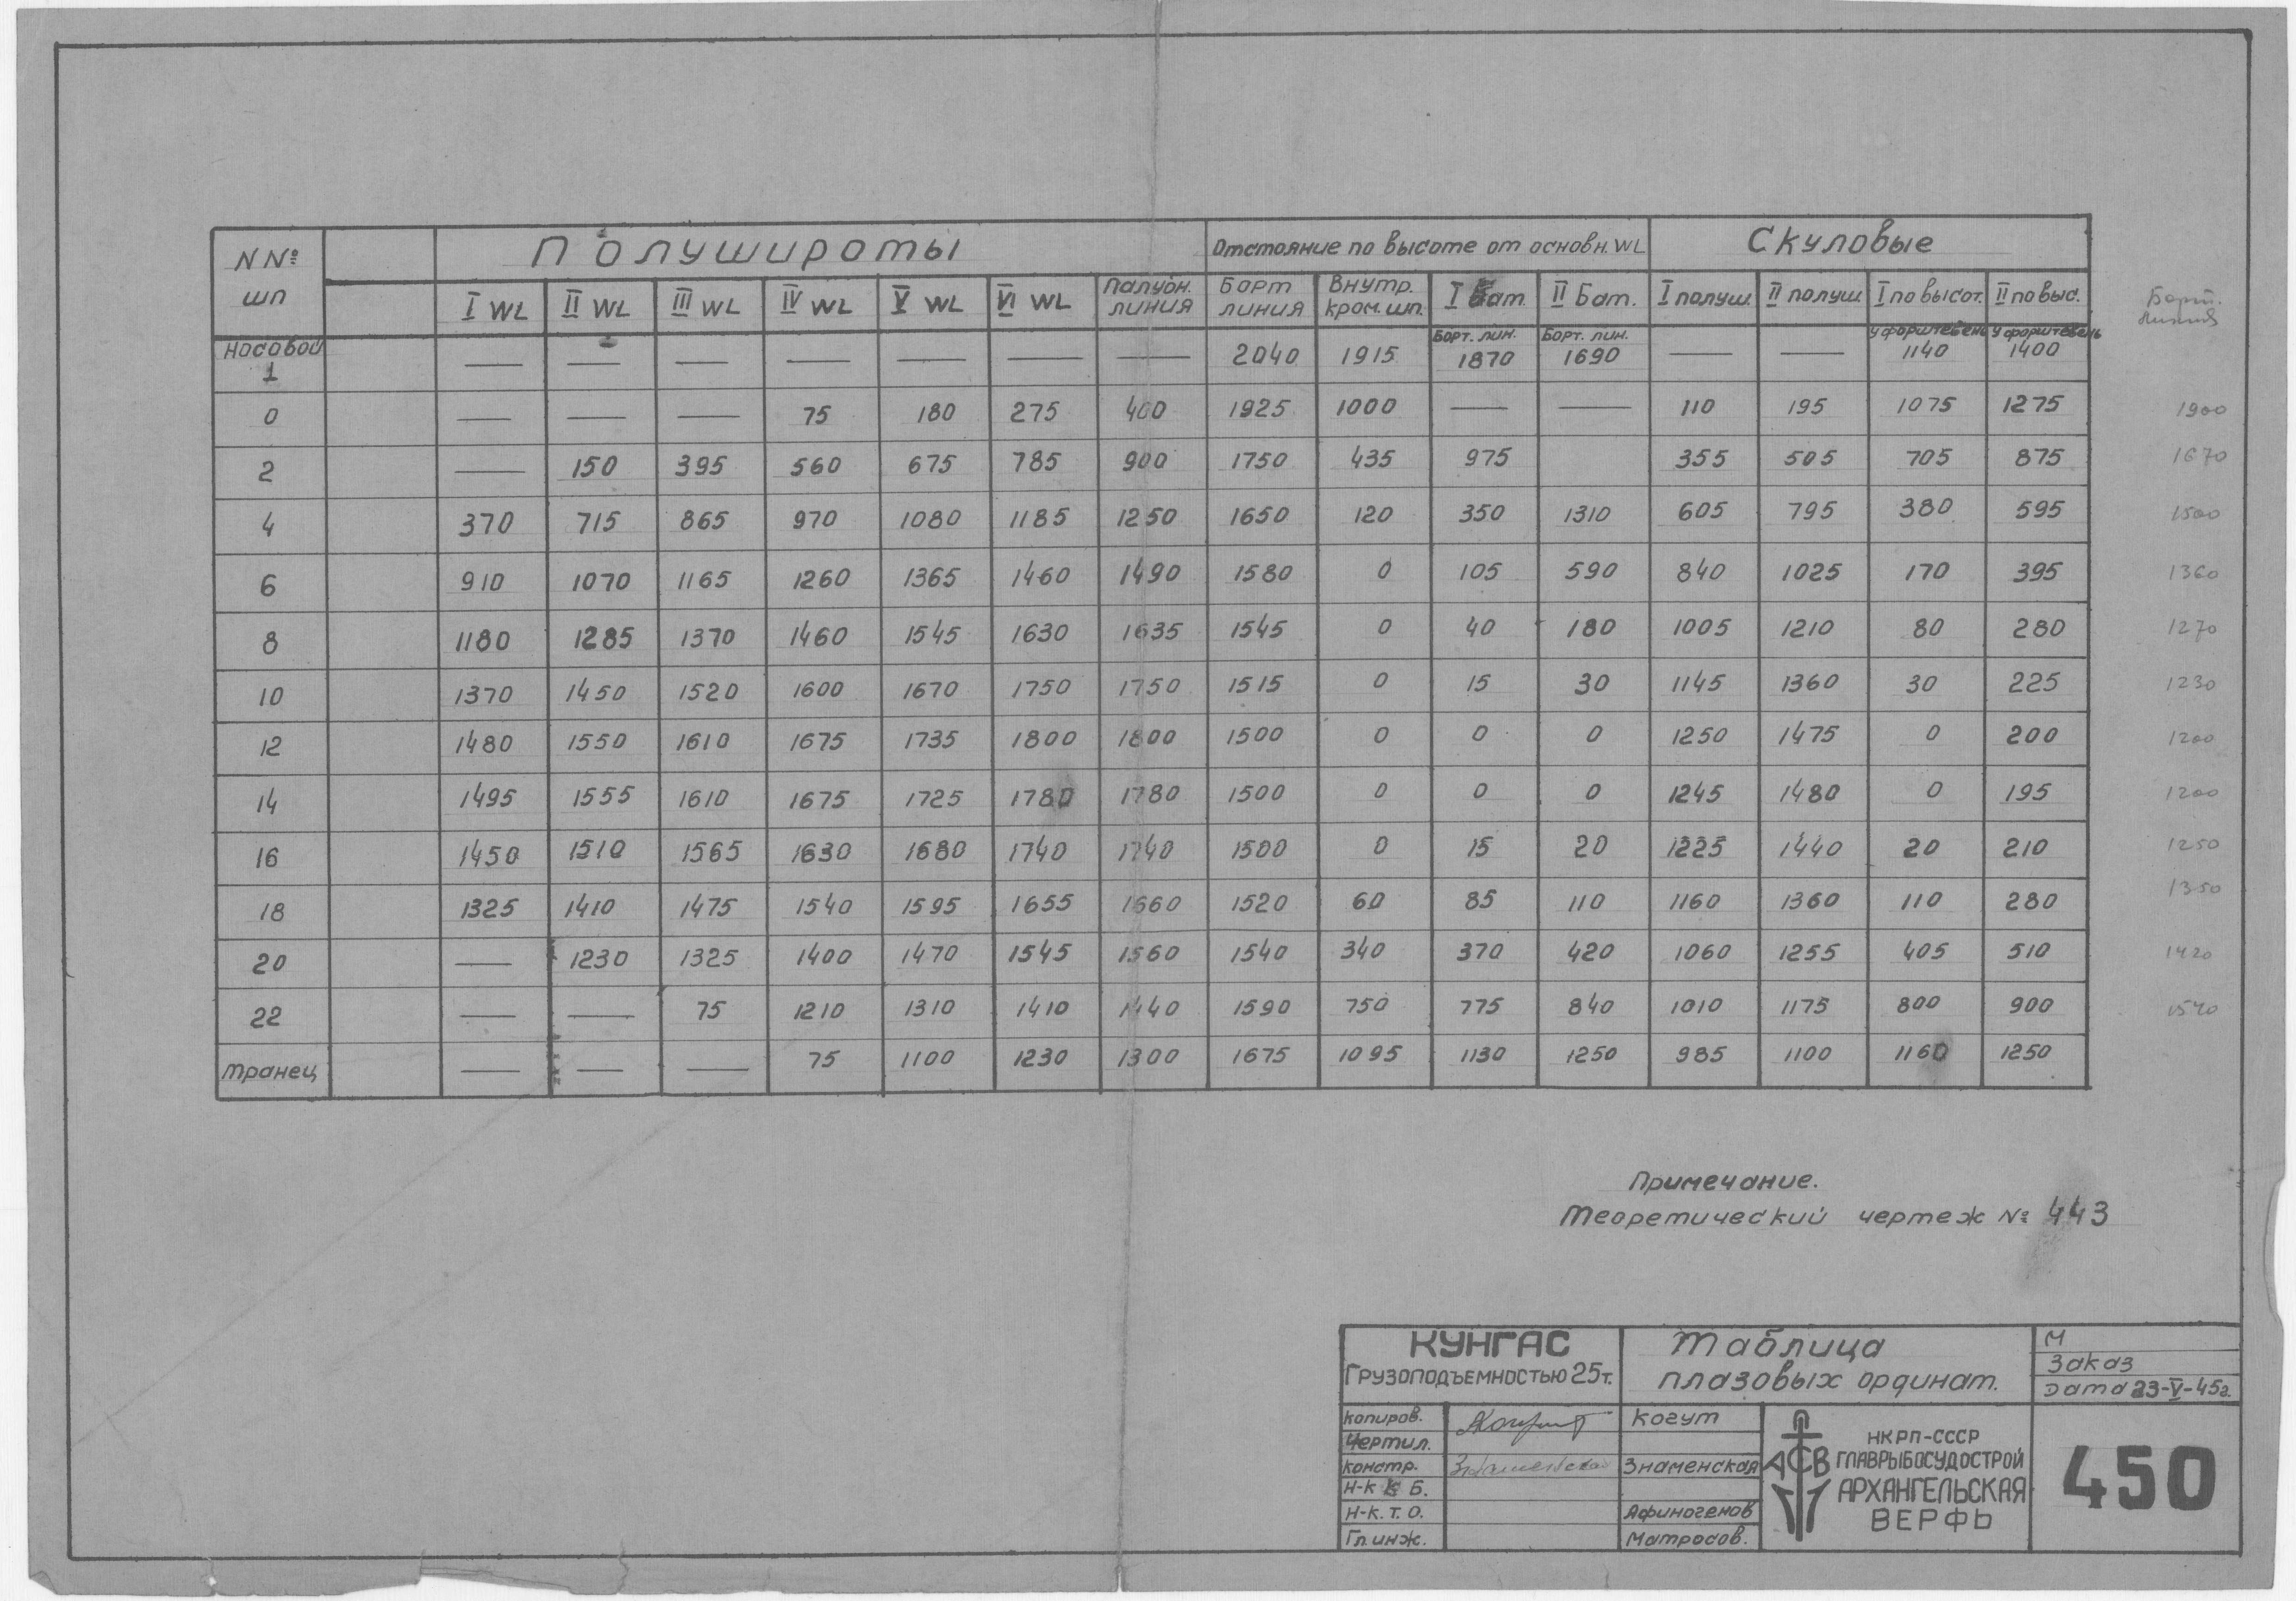 NNº шп Полушироты Отстояние по высоте от основн. WL Скуловые
I WL II WL III WL IV WL V WL VI WL Палубн. линия Борт линия Внутр. кром. шп. I Бат. II Бат. I полуш. II полуш. I по высот. II по выс.
Борт. линия
Носовой 1 — — — — — — — 2040 1915 Борт. лин. 1870 Борт. лин. 1690 — — у форштевень 1140 у форштевень 1400
0 — — — 75 180 275 400 1925 1000 — — 110 195 1075 1275 1900
2 — 150 395 560 675 785 900 1750 435 975 355 505 705 875 1670
4 370 715 865 970 1080 1185 1250 1650 120 350 1310 605 795 380 595 1500
6 910 1070 1165 1260 1365 1460 1490 1580 0 105 590 840 1025 170 395 1360
8 1180 1285 1370 1460 1545 1630 1635 1545 0 40 180 1005 1210 80 280 1270
10 1370 1450 1520 1600 1670 1750 1750 1515 0 15 30 1145 1360 30 225 1230
12 1480 1550 1610 1675 1735 1800 1800 1500 0 0 0 1250 1475 0 200 1200
14 1495 1555 1610 1675 1725 1780 1780 1500 0 0 0 1245 1480 0 195 1200
16 1450 1510 1565 1630 1680 1740 1740 1500 0 15 20 1225 1440 20 210 1250
18 1325 1410 1475 1540 1595 1655 1660 1520 60 85 110 1160 1360 110 280 1350
20 — 1230 1325 1400 1470 1545 1560 1540 340 370 420 1060 1255 405 510 1420
22 — — 75 1210 1310 1410 1440 1590 750 775 840 1010 1175 800 900 1540
транец — — — 75 1100 1230 1300 1675 1095 1130 1250 985 1100 1160 1250
Примечание.
Теоретический чертеж № 443
КУНГАС
Грузоподъемностью 25 т.
Таблица
плазовых ординат.
М
Заказ
Дата 23-V-45г.
Копиров. Когут
Чертил.
Констр. Знаменская Знаменская
Н-к К Б.
Н-к. Т. О. Афиногенов
Гл. инж. Матросов.
АСВ
НКРП-СССР
ГЛАВРЫБОСУДОСТРОЙ
АРХАНГЕЛЬСКАЯ
ВЕРФЬ
450